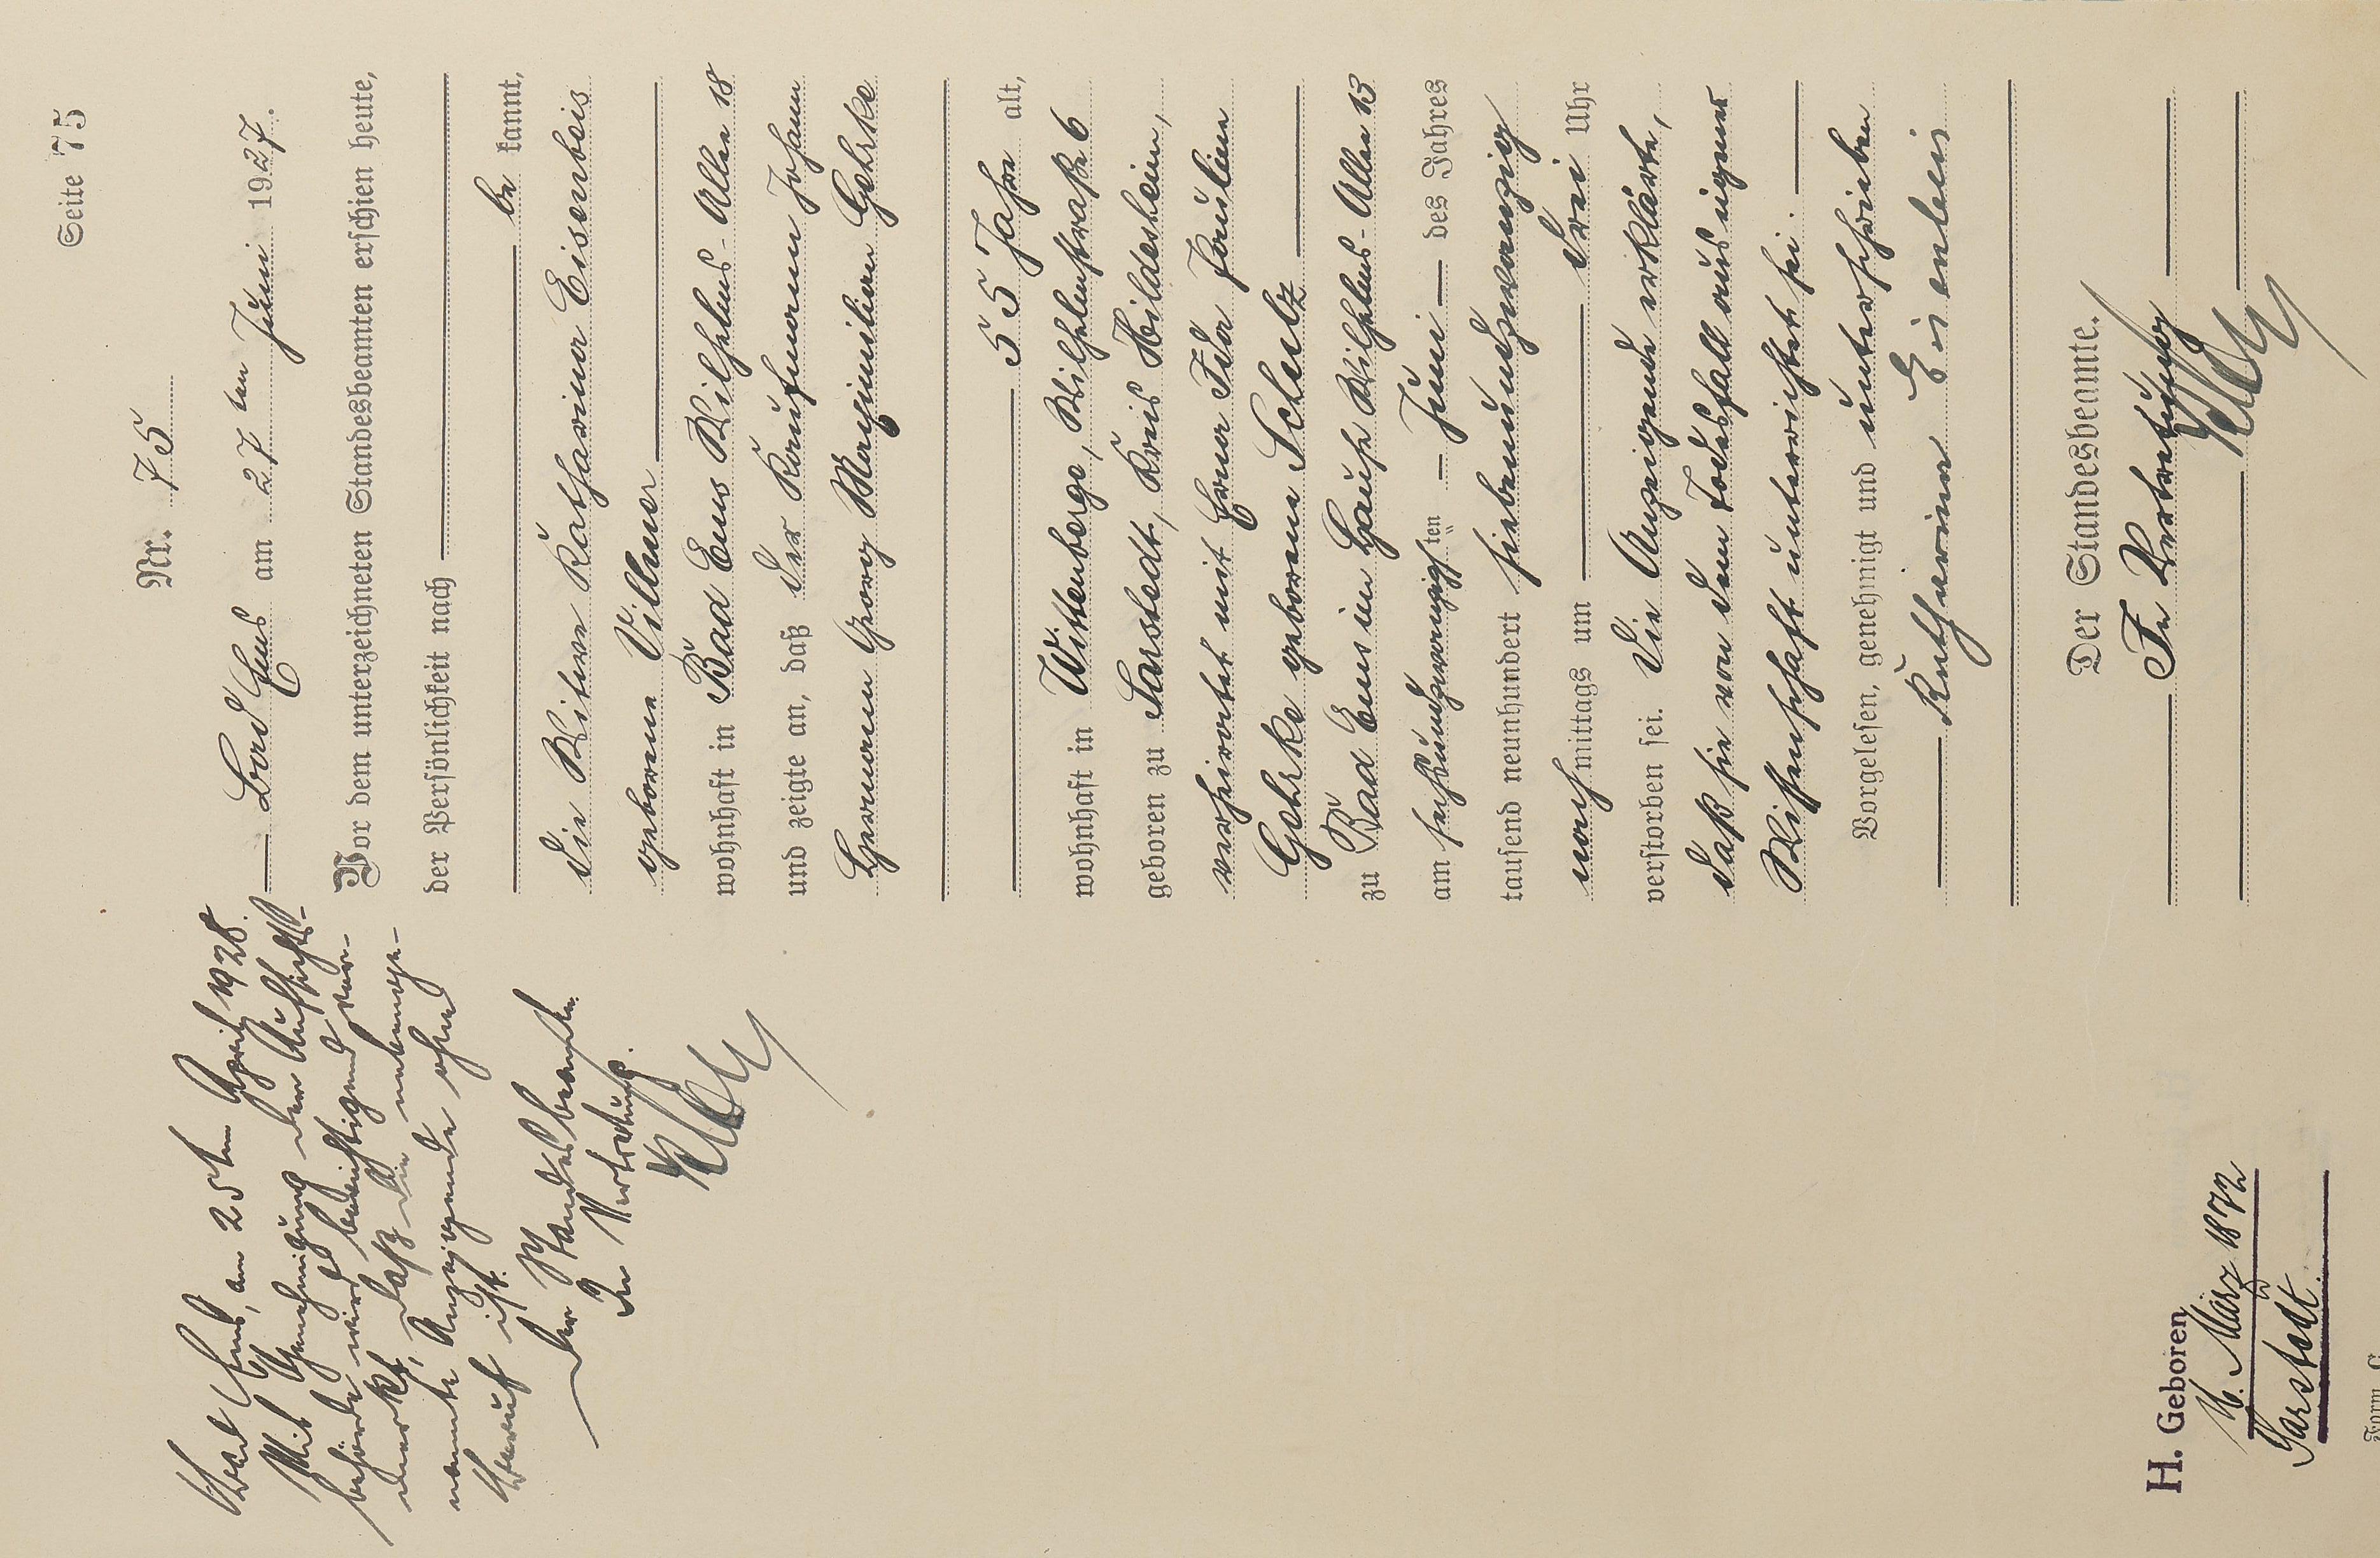 Seite 75
Nr. 75
Bad Ems am 27 ten Juni 1927.
Vor dem unterzeichneten Standesbeamten erschien heute,
der Persönlichkeit nach
be kannt,
die Witwe Katharina Eisenbeis
geborene Villmer
wohnhaft in Bad Ems Wilhelms-Allee 18
und zeigte an, daß der Kaufmann Johann
Hermann Georg Maximilian Gehrke
55 Jahre alt,
wohnhaft in Wittenberge, Wilhelmstraße 6
geboren zu Sarstedt, Kreis Hildesheim,
verheiratet mit Erna Ida Pauline
Gehrke geborene Schulz
zu Bad Ems im Hause Wilhelms-Allee 13
am sechsundzwanzigsten ten Juni des Jahres
tausend neunhundert siebenundzwanzig
nach mittags um drei Uhr
verstorben sei. Die Anzeigende erklärte,
daß sie von dem Todesfall aus eigener
Wissenschaft unterrichtet sei.
Vorgelesen, genehmigt und unterschrieben
Katharina Eisenbeis
Der Standesbeamte.
In Vertretung
Bad Ems, am 25ten April 1928.
Mit Genehmigung der Aufsichts-
behörde wird berichtigend ver-
merkt, daß die nebenge-
nannte Anzeigende ohne
Beruf ist.
Der Standesbeamte.
In Vertretung.
H. Geboren
März 1872
Sarstedt.
Form. C.